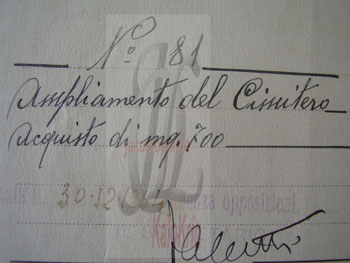 N.º 81
Ampliamento del Cimitero
Acquisto di mq. 700
30-12-
opposizioni.